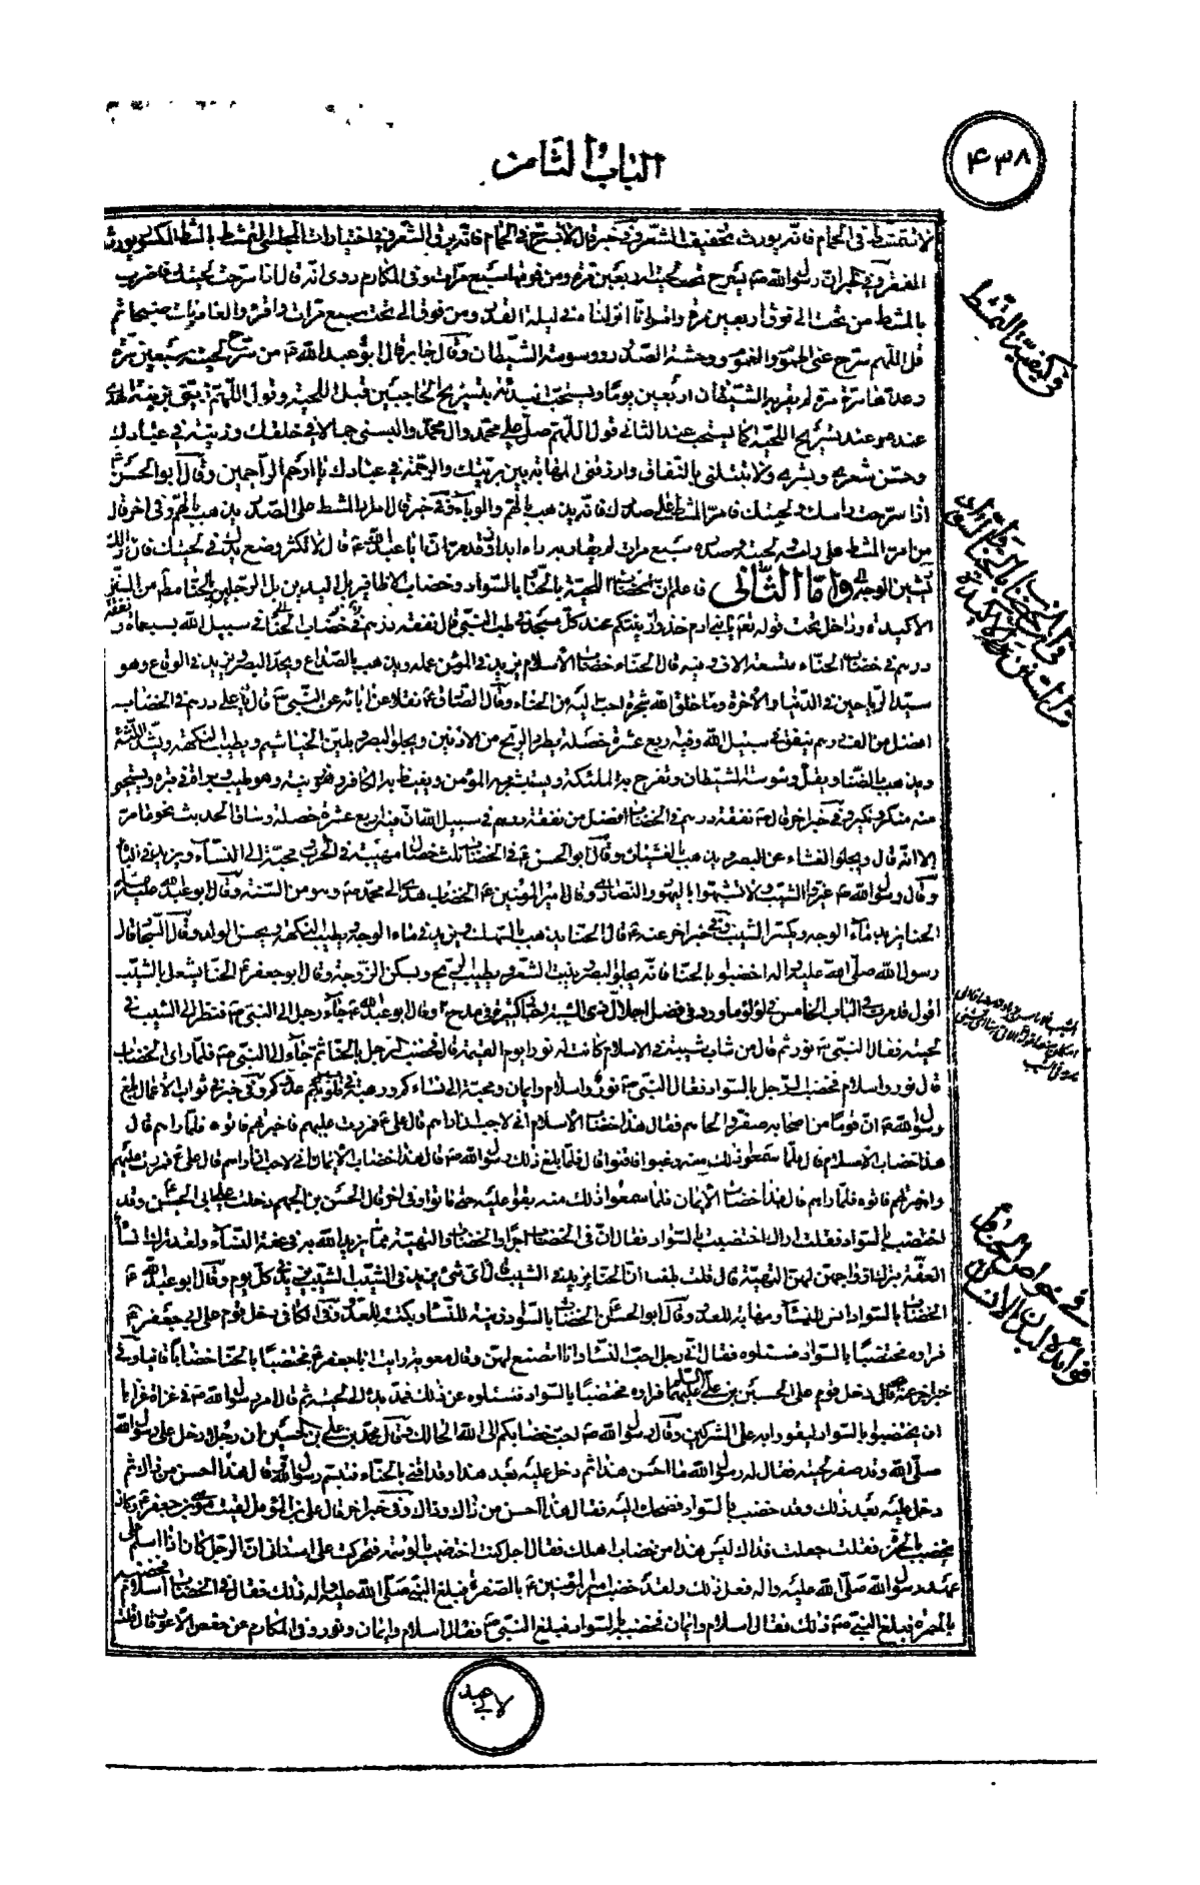 ۴۳۸
الباب الثامن
لا تتمشط في الحمام فانه يورث تخفيف الشعر وفي خبر قال لا تسرح في الحمام فانه يرق الشعر وفي اختيارات المجلسي التمشط بالمشط المكسور يورث
الفقر وفي خبر ان رسول الله ص يسرح تحت لحيته اربعين مرة ومن فوقها سبع مرات وفي المكارم روى انه قال اذا سرحت لحيتك فاضرب
بالمشط من تحت الى فوق اربعين مرة واقرأ انا انزلناه في ليلة القدر ومن فوق الى تحت سبع مرات واقرء والعاديات ضبحا ثم
قل اللهم سرح عني الهموم والغموم ووحشة الصدر ووسوسة الشيطان وقال جابر قال ابو عبد الله ع من سرح لحيته سبعين مرة
وعدها مرة مرة لم يقربه الشيطان اربعين يوما ويستحب تسريح الحاجبين قبل اللحية وقول اللهم زيني بزينة الهدى
عنده وعند تسريح اللحية كما يستحب عند الثاني قول اللهم صل على محمد وال محمد والبسني جمالا في خلقك وزينة في عبادك
وحسن شعري وبشري ولا تبتلني بالنفاق وارزقني المهابة بين بريتك والرحمة في عبادك يا ارحم الراحمين وقال ابو الحسن ع
اذا سرحت راسك ولحيتك فامر المشط على صدرك فانه يذهب بالهم والوباء وفي خبر قال امرار المشط على الصدر يذهب بالهم وفي اخر قال
من امر المشط على راسه ولحيته وصدره سبع مرات لم يقاربه داء ابدا وقد مر ان ابا عبد الله ع قال لا تكثر وضع يدك في لحيتك فان ذلك
يشين الوجه واما الثاني فاعلم ان خضاب اللحية بالحنا بالسواد وخضاب الاظافير بل اليدين بل الرجلين بالحنا مط من السنن
الاكيدة وداخل تحت قوله تعم يا بني ادم خذوا زينتكم عند كل مسجد في طب النبي قال نفقة درهم في خضاب الحنا في سبيل الله بسبعمائة ونفقة
درهم في خضاب الحناء بتسعة الاف ومنه قال الحناء خضاب الاسلام يزيد في المؤمن عمله ويذهب بالصداع ويحد البصر ويزيد في الوقاع وهو
سيد الرياحين في الدنيا والاخرة وما خلق الله شجرة احب اليه من الحناء وقال الصادق ع نقلا عن ابائه عن النبي ص قال يا علي درهم في الخضاب
افضل من الف درهم ينفق في سبيل الله وفيه اربع عشرة خصلة يطرد الريح من الاذنين ويجلو البصر ويلين الخياشيم ويطيب النكهة ويشد اللثة
ويذهب بالضنا ويقل وسوسة الشيطان وتفرح به الملئكة ويستبشر به المؤمن ويغيظ به الكافر وهو زينة وهو طيب وبراءة في قبره ويستحيي
منه منكر ونكير وفي خبر اخر قال ع نفقة درهم في الخضاب افضل من نفقة درهم في سبيل الله ان فيه اربع عشرة خصلة وساق الحديث نحو ما مر
الا انه قال ويجلو الغشاء عن البصر ويذهب بالغشيان وقال ابو الحسن ع في الخضاب ثلث خصال مهيبة في الحرب ومحبة الى النساء ويزيد في الباه
وقال رسول الله ص غيروا الشيب ولا تشبهوا باليهود والنصارى وقال امير المؤمنين ع الخضاب هدى الى محمد ص وهو من السنة وقال ابو عبد الله عليه
الحنا يزيد ماء الوجه ويكثر الشيب وفي خبر اخر عنه ع قال الحنا يذهب بالسهك ويزيد في ماء الوجه ويطيب النكهة ويحسن الولد وقال السجاد قال
رسول الله صلى الله عليه واله اخضبوا بالحنا فانه يجلو البصر وينبت الشعر ويطيب الريح ويسكن الزوجة وقال ابو جعفر ع الحنا يشعل بالشيب
اقول قد مرت في الباب الخامس في لؤلؤ ما ورد في فضل اجلال ذي الشيبة اخبار كثيرة في مدح وقال ابو عبد الله ع جاء رجل الى النبي ص فنظر الى الشيب في
لحيته فقال النبي ص نور ثم قال من شاب شيبة في الاسلام كانت له نورا يوم القيمة قال فخضب الرجل بالحنا ثم جاء الى النبي ص فلما راى الخضاب
قال نور واسلام فخضب الرجل بالسواد فقال النبي ص نور واسلام وايمان ومحبة الى نساءكم ورهبة في قلوب عدوكم وفي خبر في ثواب الاعمال بلغ
رسول الله ص ان قوما من اصحابه صفروا لحاهم فقال هذا خضاب الاسلام اني لاحب ان اراهم قال علي ع فمررت عليهم فاخبرتهم فاتوه فلما راهم قال
هذا خضاب الاسلام قال فلما سمعوا ذلك منه رغبوا فاقنوا قال فلما بلغ ذلك رسول الله ص قال هذا خضاب الايمان اني لاحب ان اراهم قال علي ع فمررت عليهم
واخبرتهم فاتوه فلما راهم قال هذا خضاب الايمان فلما سمعوا ذلك منه بقوا عليه حتى ماتوا وفي اخر قال الحسن بن الجهم دخلت على ابي الحسن ع وقد
اختضب بالسواد فقلت اراك اختضبت بالسواد فقال ان في الخضاب اجرا والخضاب والتهيئة مما يزيد الله به في عفة النساء ولقد ترك نساء
العفة بترك ازواجهن لهن التهيئة قال قلت بلغنا ان الحنا يزيد في الشيب قال اي شيء يزيد في الشيب الشيب يزيد كل يوم وقال ابو عبد الله ع
الخضاب بالسواد انس للنساء ومهابة للعدو وقال ابو الحسن الخضاب بالسواد زينة للنساء ومكبتة للعدو وفي الكافي دخل قوم على ابي جعفر ع
فراوه مختضبا بالسواد فسئلوه فقال اني رجل احب النساء وانا اتصنع لهن وقال معوية رايت ابا جعفر ع مختضبا بالحنا خضابا قانيا وفي
خبر اخر عنه قال دخل قوم على الحسين بن علي عليهما السلام فراوه مختضبا بالسواد فسئلوه عن ذلك فمد يده الى لحيته ثم قال امر رسول الله ص في غزاة غزاها
ان يختضبوا بالسواد ليقووا به على المشركين وقال رسول الله ص احب خضابكم الى الله الحالك وقال محمد بن علي بن الحسين ان رجلا دخل على رسول الله
صلى الله وقد صفر لحيته فقال له رسول الله ما احسن هذا ثم دخل عليه بعد هذا وقد اقنى بالحناء فتبسم رسول الله وقال هذا احسن من ذاك ثم
دخل عليه بعد ذلك وقد خضب بالسواد فضحك اليه فقال هذا احسن من ذاك وذاك وفي خبر اخر قال علي بن المؤمل لقيت موسى بن جعفر ع وكان
يخضب بالحمرة فقلت جعلت فداك ليس هذا من خضاب اهلك فقال اجل كنت اختضب بالوسمة فتحركت على اسناني ان الرجل كان اذا اسلم على
عهد رسول الله صلى الله عليه واله فعل ذلك ولقد خضب امير المؤمنين ع بالصفرة فبلغ النبي صلى الله عليه واله ذلك فقال في الخضاب اسلام فخضبه
بالحمرة فبلغ النبي ص ذلك فقال اسلام وايمان فخضب بالسواد فبلغ النبي ص فقال اسلام وايمان ونور وفي المكارم عن حفص الاعور قال قلت
في كيفية التمشط
في خواص الحنا و
فوائده لبدن الانسان
لابي عبد